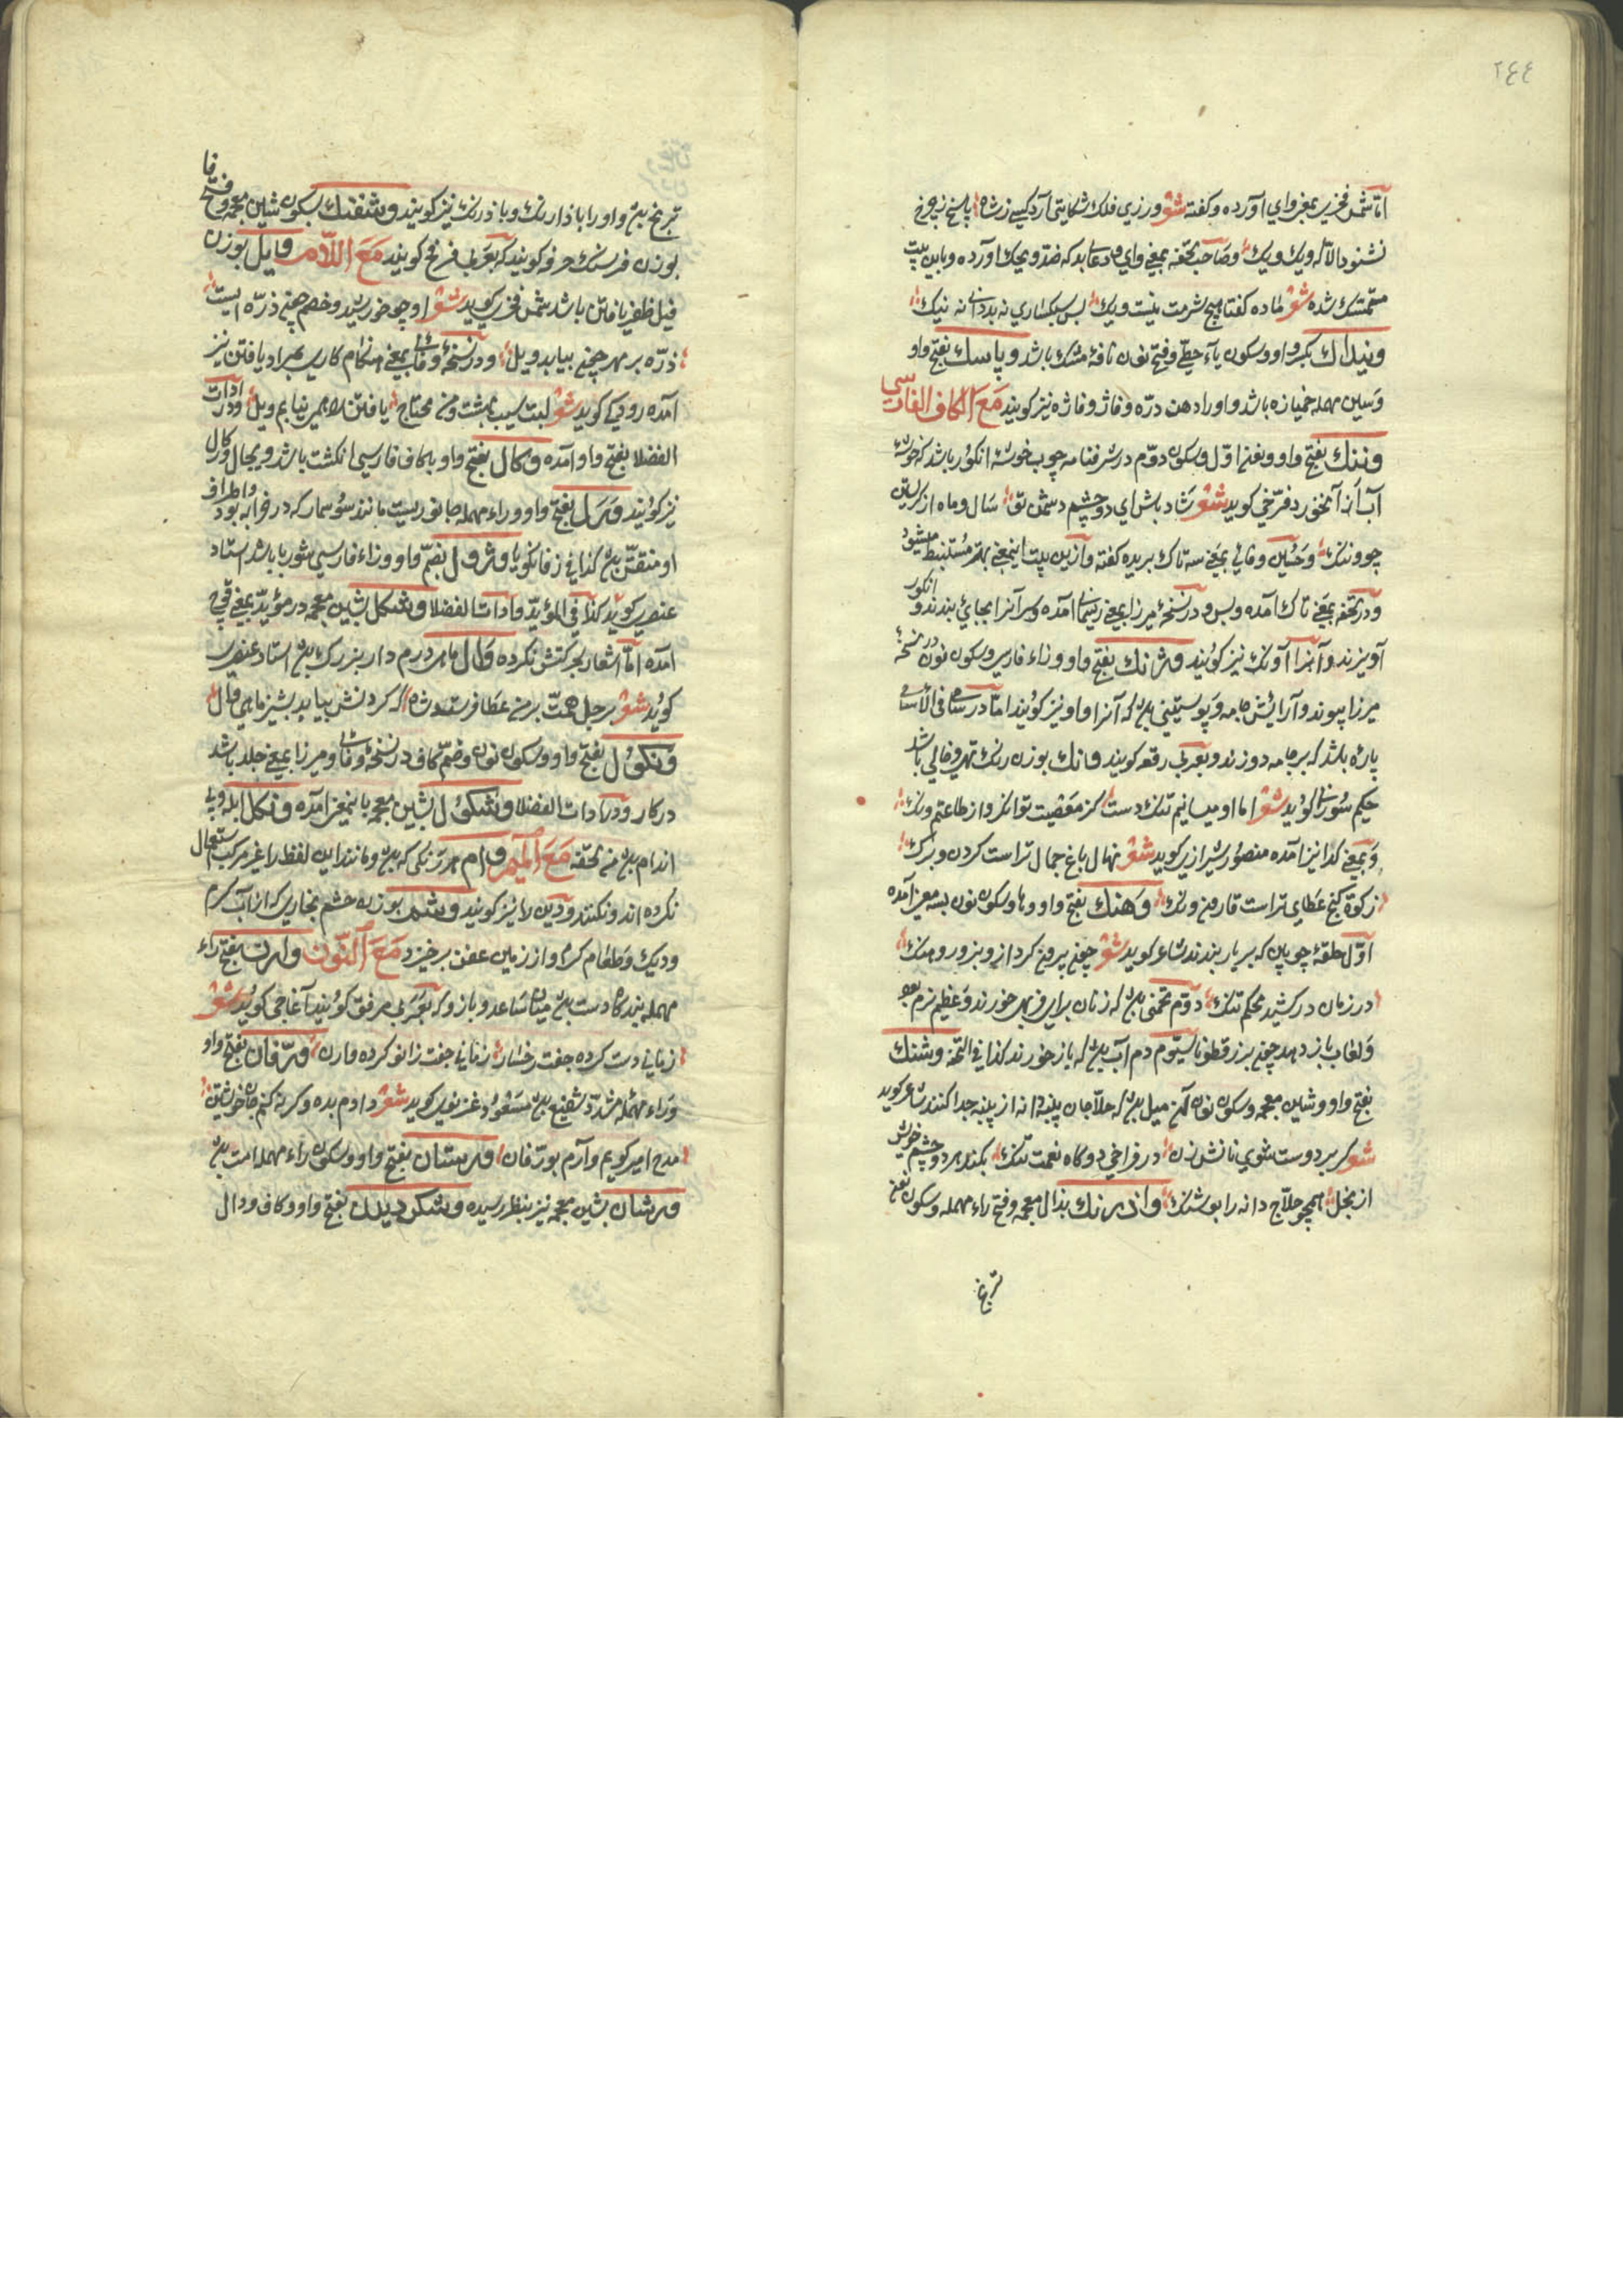 ٢٤٤
اما شمس فخری بمعنی وای آورده و کفته شعر ورزی فلک شکایتی آرد کسی ز شاه پاسخ زچرخ
نشنود الا که ویک ویک وصاحب تحفه بمعنی وای و دعا بد که ضد ویحک آورده و باین بیت
متمسک شده شعر ماده کفتا هیچ شرمت نیست ویک بس سبکساری نه بد دانی نه نیک
ونیدانک بکسر واو وسکون یاء حطی وفتح نون نافهٔ مشک باشد وپاسک بفتح واو
وسین مهمله خمیازه باشد و او را دهن درّه وفاژ وفاژه نیز کویند مع الکاف الفارسی
وننک بفتح واو ونون اوّل وسکون دوّم در شرفنامه چوب خوشهٔ انکور باشد که خوشهٔ
آب از آنخورد فرّخی کوید شعر شاد باش ای دو چشم دشمن تو سال و ماه از کریستن
چو وننک وحسین وفائی بمعنی سه تاک بریده کفته وازین بیت اینمعنی بهتر مستنبط میشود
ودر تحفه بمعنی تاک آمده وبس ودر نسخهٔ میرزا بمعنی ریسمانی آمده که سر آنرا بجایی بندند و انکور
آویزند وآنرا آونک نیز کویند وژنک بفتح واو وزاء فارسی وسکون نون در نسخهٔ
میرزا پیوند وآرایش جامه وپوستینی بد که آنرا واو نیز کویند اما در سامی فی الاسامی
پاره باشد که بر جامه دوزند وبعربی رقعه کویند ونک بوزن رنک تهی وخالی باشد
حکیم سوزنی کوید شعر اما او میسانیم تنک دست کز معصیت توانکر واز طاعتیم ونک
وبمعنی کدا نیز آمده منصور شیرازی کوید شعر نهال باغ جمال تراست کردن وبرک
زکوة کنج عطای تراست قارون ونک وهنک بفتح واو وها وسکون نون بسه معنی آمده
اوّل حلقهٔ چوبین که بر بار بندند شاعر کوید شعر چون پروین کرد از و بزور وهنک
در زمان در کشید محکم تنک دوّم تخمی بد که زنان برای فربهی خورند وعظیم نرم بود
ولعاب باز دهد چون بزرقطونا سیّوم دم آب بد که باز خورند کذا فی التحفه وشنک
بفتح واو وشین معجمه وسکون نون آهن میل بد که حلّاجان پنبه دانه از پنبه جدا کنند شاعر کوید
شعر کر بر دوست شوی نانش زن در فراخی وکاه نعمت تنک بکند هر دو چشم خویش
از بخل همچو حلّاج دانه را بوشنک واذرنک بذال معجمه وفتح راء مهمله وسکون نون
ترنج
ترنج بد واو را باذارنک وباذرنک نیز کویند وشفنک بسکون شین معجمه وفتح فا
بوزن فرسنک خرفه کویند که بعربی فرفخ کویند مع اللام وایل بوزن
فیل ظفر یافتن باشد شمس فخری کوید شعر او چو خورشید وخصم چون ذرّه ایست
ذرّه بر مهر چون بیابد ویل ودر نسخهٔ وفائی بمعنی هنکام کاری بمراد یافتن نیز
آمده رودکی کوید شعر لبت سیب بهشت ومن محتاج یافتن را همی نیابم ویل ودر ادات
الفضلا بفتح واو آمده وکال بفتح واو با کاف فارسی انکشت باشد وبجال وژکال
نیز کویند ورل بفتح واو وراء مهمله جانوریست مانند سوسمار که در خرابه بود واطراف
او منقش بد کذا فی زفانکویا وژول بضم واو وزاء فارسی شوربا باشد استاد
عنصری کوید کذا فی المؤید وادات الفضلا وشکل بشین معجمه در مؤید بمعنی قوچ
آمده اما اشعار بحرکتش نکرده وال ماهی درم دار بزرک بد استاد عنصری
کوید شعر برجل همت بر من عطا فرستد شاه که کردنش بیاید بشیز ماهی وال
ونکول بفتح واو وسکون نون وضم کاف در نسخهٔ وفائی ومیرزا بمعنی جلد باشد
در کار ودر ادات الفضلا وشکول بشین معجمه باینمعنی آمده وتکل ابله وبد
اندام بد من تحفه مع المیم وام هر رنکی که بد ومانند این لفظ را غیر مرکب استعمال
نکرده اند ونکنند ودین را نیز کویند وشم بوزن خشم بخاری که از آب کرم
ودیک وطعام کرم واز زمین عفن برخیزد مع النون وارن بفتح راء
مهمله بند کاه دست بد میان ساعد وبازو که بعربی مرفق کویند آغاجی کوید شعر
زمانی دست کرده جفت رخسار زمانی جفت زانو کرده وارن ورّفان بفتح واو
وراء مهمله مشدد شفیع بد مسعود غزنوی کوید شعر دادم بده وکرنه کنم جان خویشتن
مدح امیر کویم وآرم بورّفان ورستان بفتح واو وسکون راء مهمله امت بد
ورشان بشین معجمه نیز بنظر رسیده وشکردیدن بفتح واو وکاف ودال